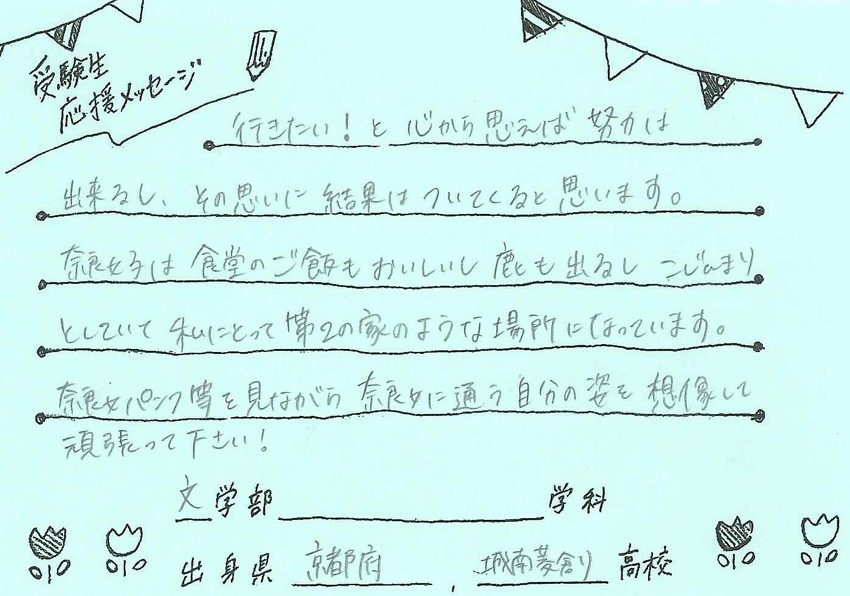 受験生
応援メッセージ
行きたい！と心から思えば努力は
出来るし、その思いに結果はついてくると思います。
奈良女子は食堂のご飯もおいしいし鹿も出るしこじんまり
としていて私にとって第2の家のような場所になっています。
奈良女パンフ等を見ながら奈良女に通う自分の姿を想像して
頑張って下さい！
文学部 学科
出身県 京都府，城南菱創り高校